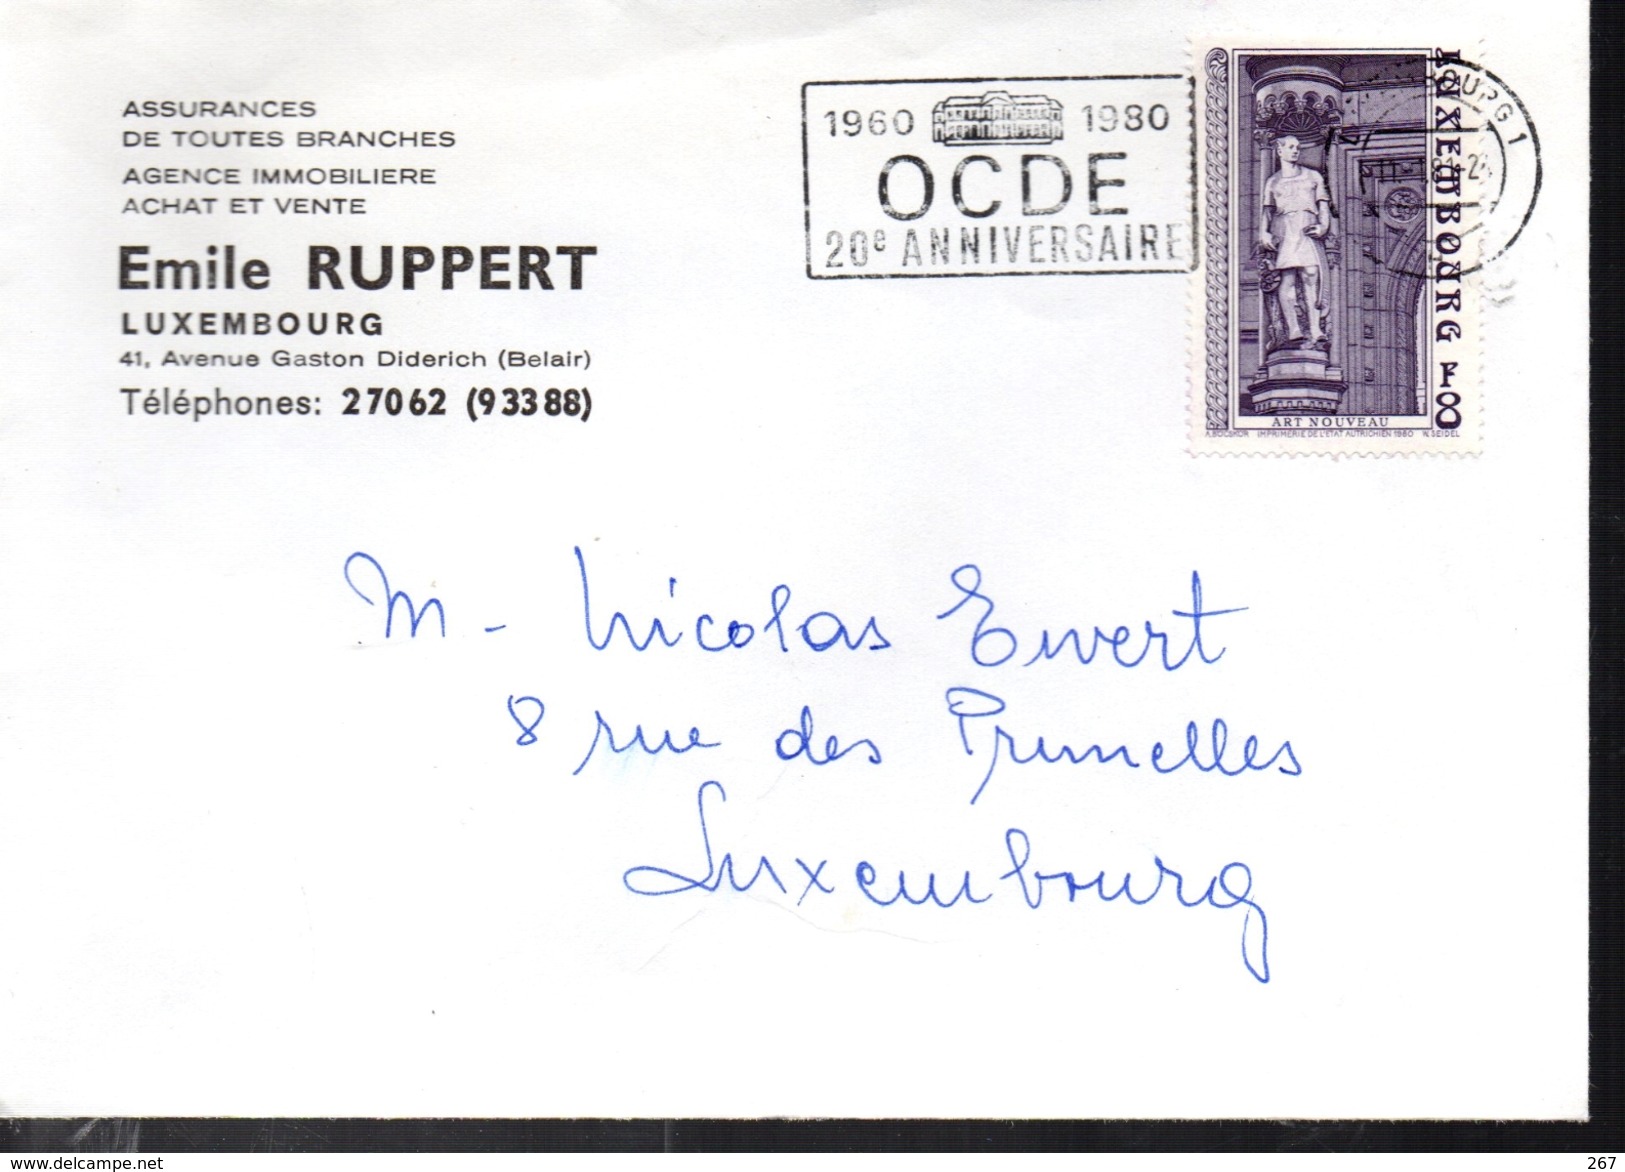 ASSURANCES
DE TOUTES BRANCHES
AGENCE IMMOBILIERE
ACHAT ET VENTE
Emile RUPPERT
LUXEMBOURG
41, Avenue Gaston Diderich (Belair)
Téléphones: 27062 (93388)
1960 1980
OCDE
20e ANNIVERSAIRE
OURG 1
LUXEMBOURG F8
ART NOUVEAU
A.BOCSKOR IMPRIMERIE DE L'ETAT AUTRICHIEN 1980 N. SEIDEL
M - Nicolas Ewert
8 rue des Prunelles
Luxembourg
www.delcampe.net
267